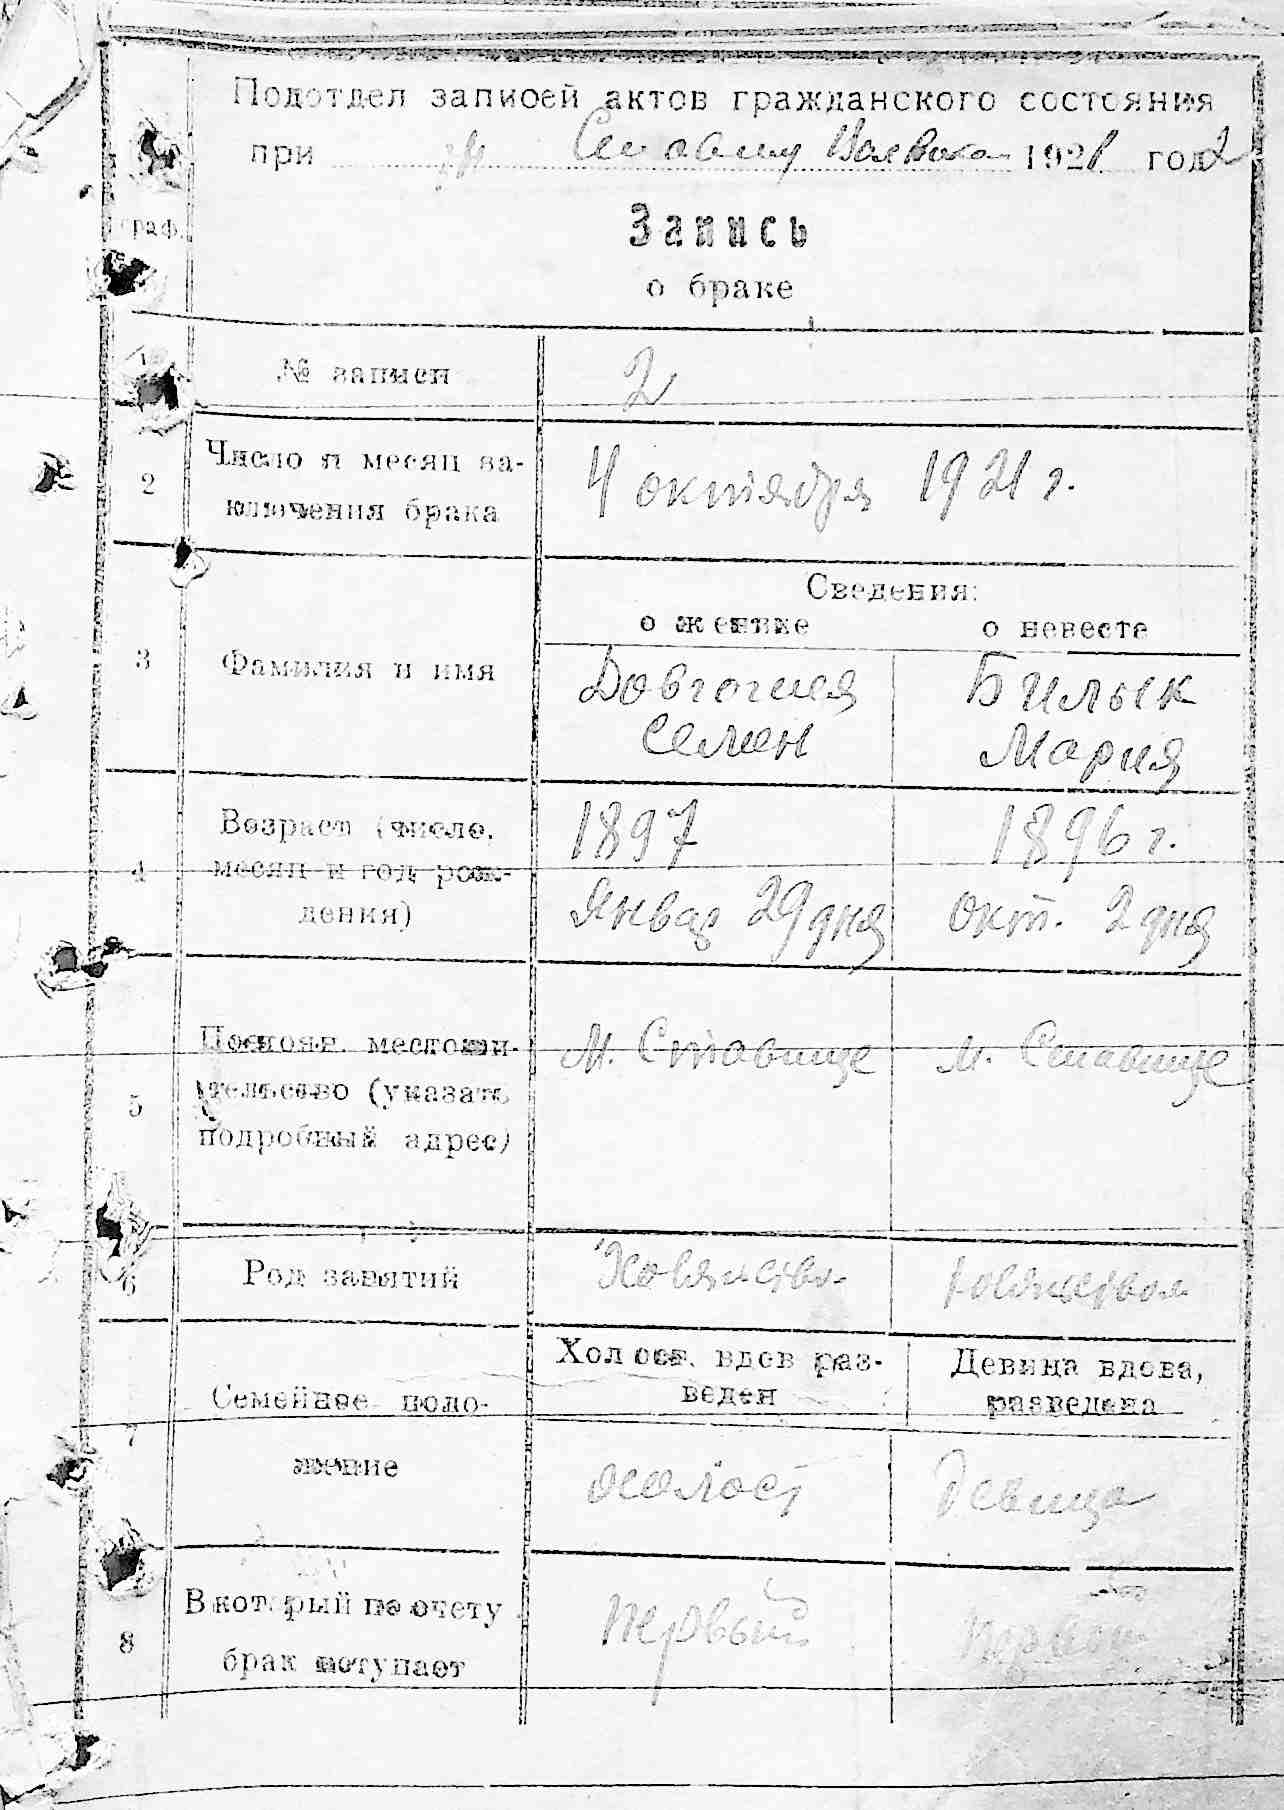 Подотдел записей актов гражданского состояния
при Ставищ Волвоком 1921 год
граф.
Запись
о браке
1 № записи 2
2 Число и месяц за-
ключения брака 4 октября 1921 г.
Сведения:
о женихе о невесте
3 Фамилия и имя Довгогиея Билык
Семен Мария
4 Возраст (число, 1897 1896 г.
месяц и год рож-
дения) Январ 29 дня окт. 2 дня
5 Постоян. местожи- м. Ставище м. Ставище
тельство (указать
подробный адрес)
6 Род занятий Ховяйство
Холост. вдов раз- Девица вдова,
веден разведена
7 Семейное поло-
жение холост девица
8 В который по счету первый первый
брак вступает